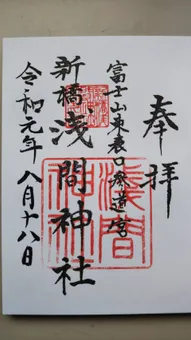 奉拝
富士山東表口須走道宮
新橋浅間神社
浅間神社
令和元年八月十八日